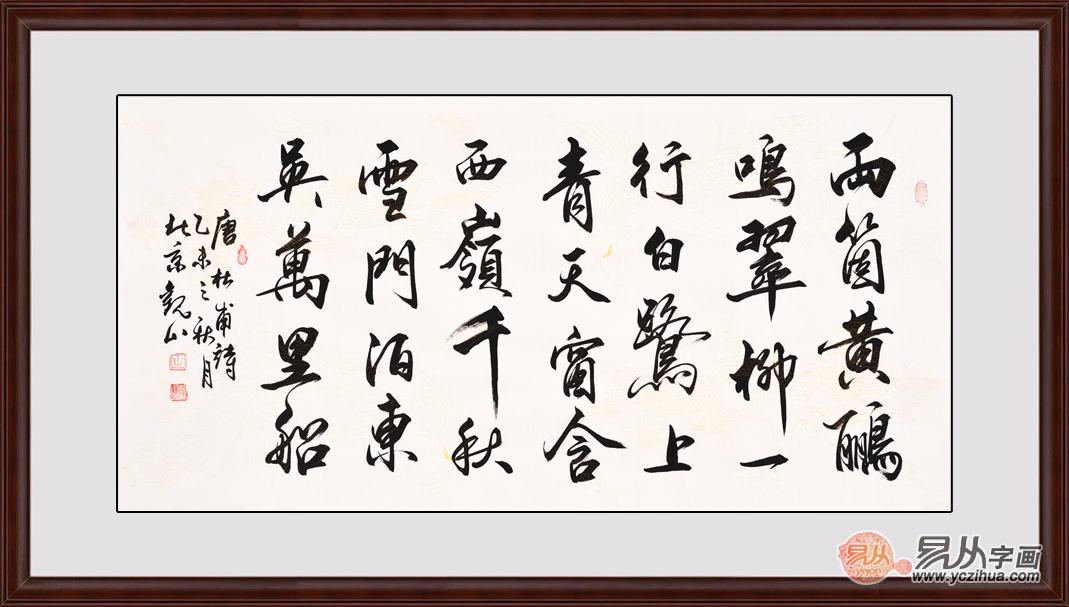 兩箇黃鸝
鳴翠柳一
行白鷺上
青天窗含
西嶺千秋
雪門泊東
吳萬里船
唐杜甫詩
乙未之秋月
北京觀山
易从
易从字画
www.yczihua.com